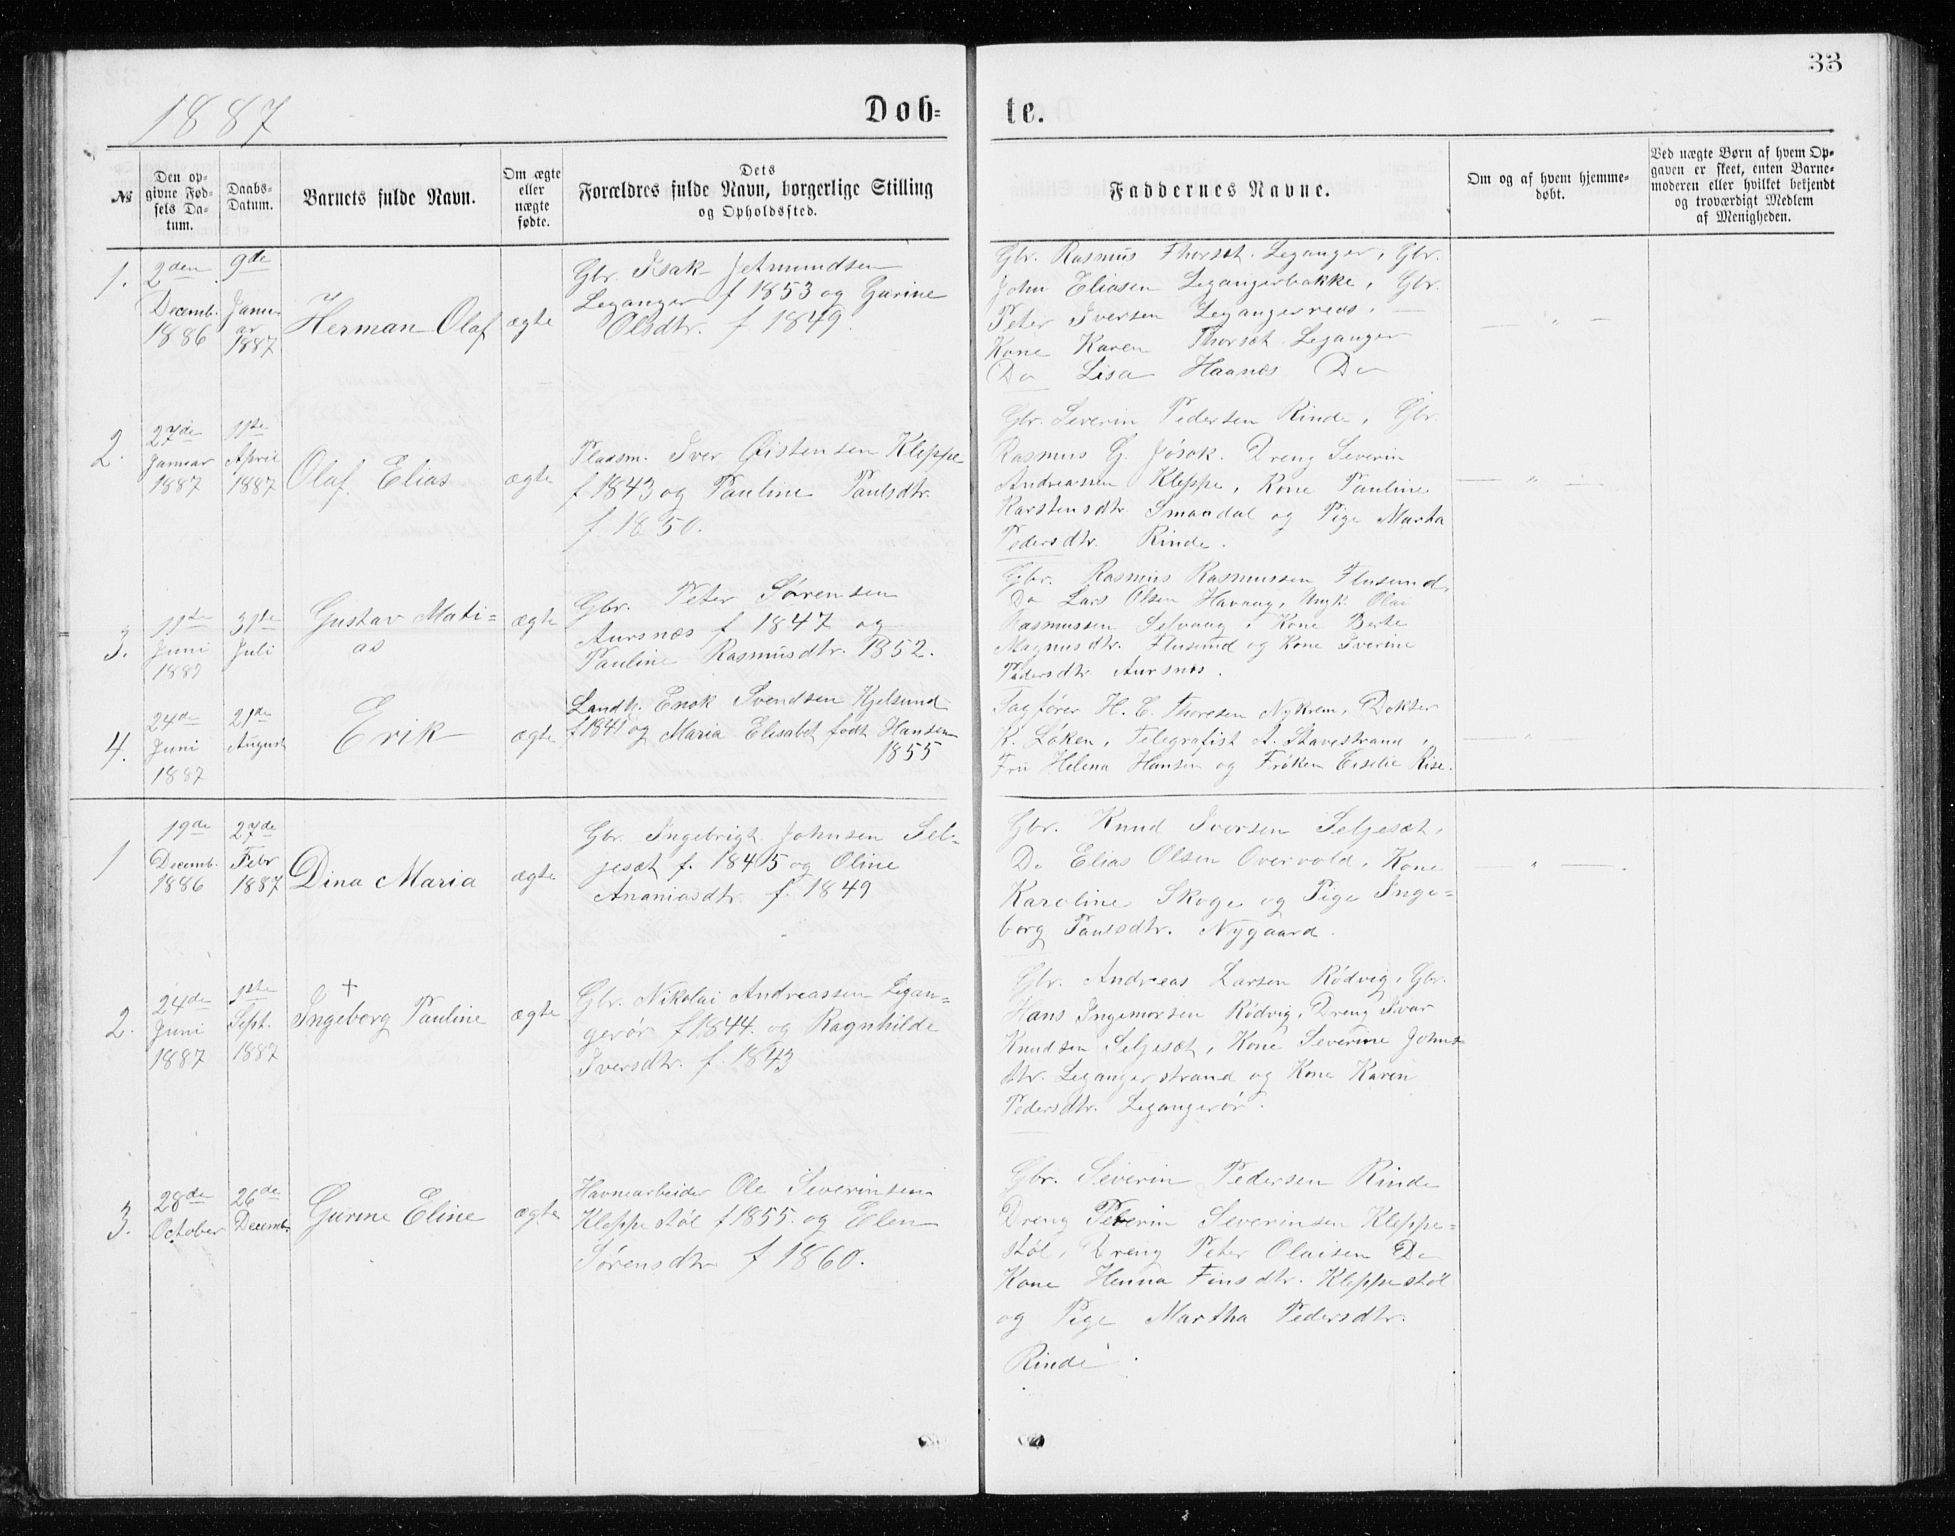 33
1887
Døb-
te.
№
Den op-
givne Fød-
sels Da-
tum.
Daabs-
Datum.
Barnets fulde Navn.
Om ægte
eller
uægte
fødte.
Dets
Forældres fulde Navn, borgerlige Stilling
og Opholdssted.
Faddernes Navne.
Om og af hvem hjemme-
døbt.
Ved uægte Børn af hvem Op-
gaven er skeet, enten Barne-
moderen eller hvilket bekjendt
og troværdigt Medlem
af Menigheden.
1.
2den
Decemb.
1886
9de
Janu-
ar
1887
Herman Olaf
ægte
Gbr. Isak Jetmundsen
Leganger f 1853 og Gurine
Olsdtr. f 1849.
Gbr. Rasmus Thorset. Leganger, Gbr.
John Eliasen Legangerbakke, Gbr.
Peter Iversen
Kone Karen Thorset Leganger
Do Lisa Haanes Do
— " —
2.
27de
Januar
1887
11te
April
1887
Olaf Elias
ægte
Pladsm. Iver Østensen Kleppe
f 1843 og Pauline Paulsdtr.
f 1850.
Gbr. Severin Pedersen Rinde, Gbr.
Rasmus G. Jøsok. Dreng Severin
Andreassen Kleppe, Kone Pauline
Karstensdtr. Smaadal og Pige Martha
Pedersdtr. Rinde.
— " —
3.
11te
Juni
1887
31te
Juli
Gustav Mati-
as
ægte
Gbr. Peter Sørensen
Aursnes f 1847 og
Pauline Rasmusdtr. 1852.
Gbr. Rasmus Rasmussen Flusund,
Do Lars Olsen Havaag, Ungk. Olai
Rasmussen Selvaag, Kone Berte
Magnusdtr. Flusund og Kone Iverine
Pedersdtr. Aursnes.
4.
24de
Juni
1887
21de
August
Erik
ægte
Landh. Enok Svendsen Kjelsund
f 1841 og Maria Elisabet født Hansen
1855
Sagfører H. E. Thoresen Nykrem, Dokter
K. Løken, Telegrafist A. Stavestrand,
Fru Helena Hansen og Frøken Rise.
— " —
1
19de
Decemb.
1886
27de
Febr
1887
Dina Maria
ægte
Gbr. Ingebrigt Johnsen Sel-
jeset f. 1845 og Oline
Ananiasdtr. f. 1849
Gbr. Knud Iversen Seljeset,
Do Elias Olsen Overvold, Kone
Karoline Skoge og Pige Inge-
borg Paulsdtr. Nygaard.
— " —
2.
24de
Juni
1887
1ste
Sept.
1887
+
Ingeborg Pauline
ægte
Gbr. Nikolai Andreassen Legan-
gerør f 1844. og Ragnhilde
Iversdtr. f. 1843
Gbr. Andreas Larsen Rødvig, Gbr.
Hans Ingemorsen Rødvig, Dreng Ivar
Knudsen Seljeset, Kone Severine Johns-
dtr. Legangerstrand og Kone Karen
Pedersdtr. Legangerør.
3.
28de
October
26de
Decemb.
Gurine Eline
ægte
Havnearbeider Ole Severinsen
Kleppestøl f 1855. og Elen
Sørensdtr f 1860.
Gbr. Severin Pedersen Rinde
Dreng Severinsen Kleppe-
støl, Dreng Peter Olaisen Do
Kone Henna Finsdtr. Kleppestøl
og Pige Martha Pedersdtr.
Rinde.